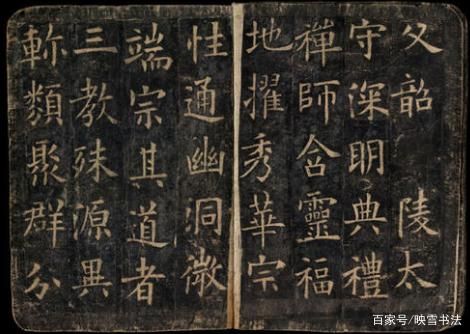 父韶 陵太
守深明典禮
禪師含靈福
地擢秀華宗
性通幽洞微
端宗其道者
三教殊源異
軫類聚群分
百家号/映雪书法